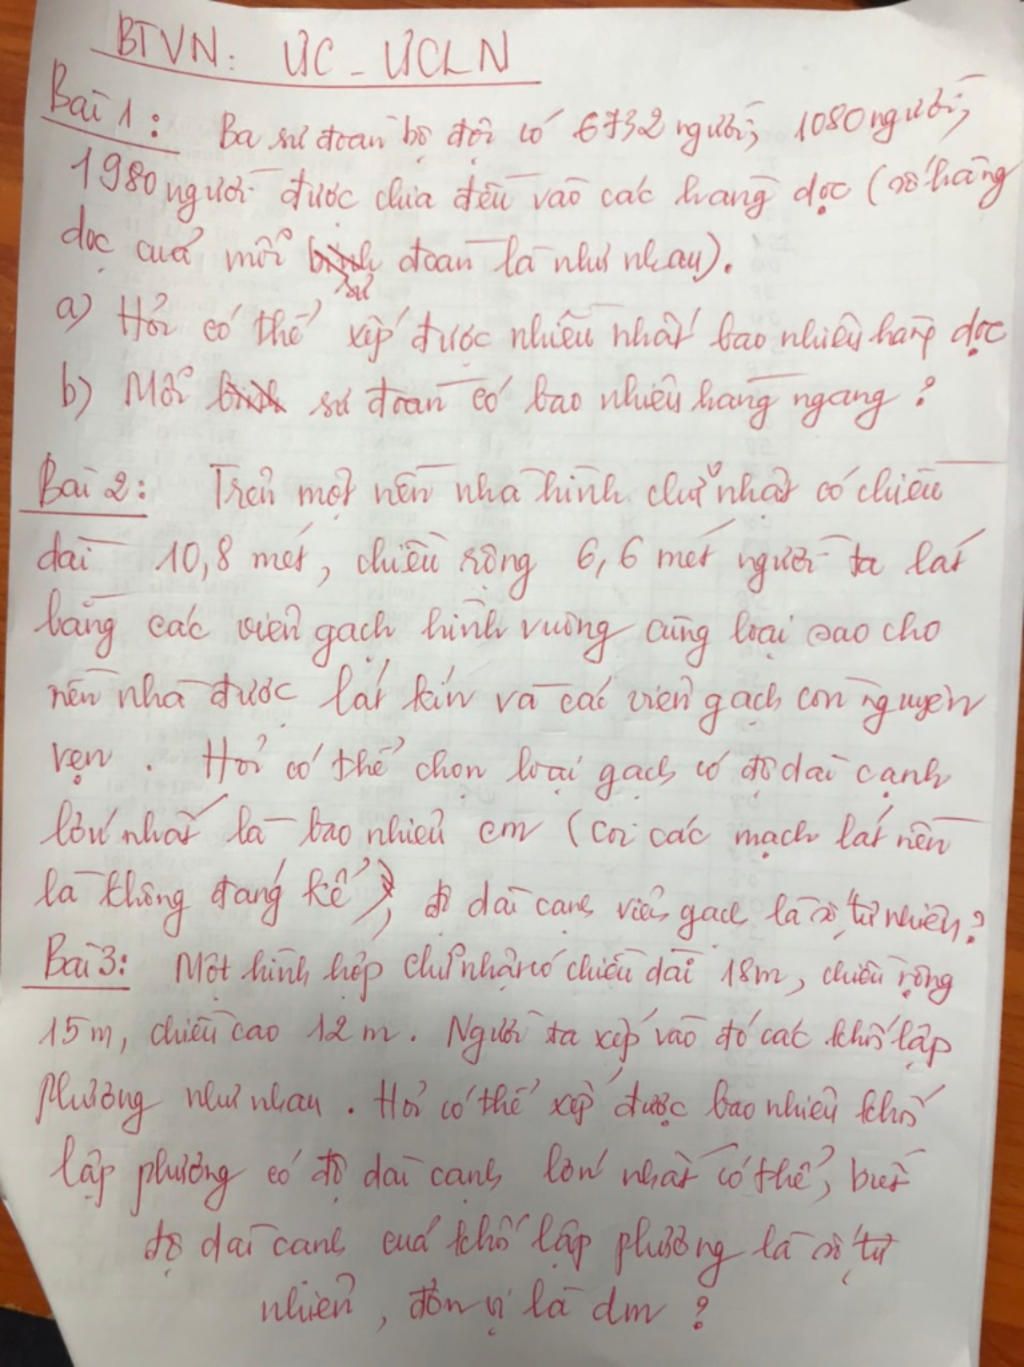 BTVN: ƯC - ƯCLN
Bài 1: Ba sư đoàn bộ đội có 6732 người, 1080 người,
1980 người được chia đều vào các hàng dọc (số hàng
dọc của mỗi đoàn là như nhau).
sư
a) Hỏi có thể xếp được nhiều nhất bao nhiêu hàng dọc
b) Mỗi sư đoàn có bao nhiêu hàng ngang?
Bài 2: Trên một nền nhà hình chữ nhật có chiều
dài 10,8 mét, chiều rộng 6,6 mét người ta lát
bằng các viên gạch hình vuông cùng loại sao cho
nền nhà được lát kín và các viên gạch còn nguyên
vẹn. Hỏi có thể chọn loại gạch có độ dài cạnh
lớn nhất là bao nhiêu cm (coi các mạch lát nền
là không đáng kể), độ dài cạnh viên gạch là số tự nhiên?
Bài 3: Một hình hộp chữ nhật có chiều dài 18m, chiều rộng
15m, chiều cao 12m. Người ta xếp vào đó các khối lập
phương như nhau. Hỏi có thể xếp được bao nhiêu khối
lập phương có độ dài cạnh lớn nhất có thể, biết
độ dài cạnh của khối lập phương là số tự
nhiên, đơn vị là dm?